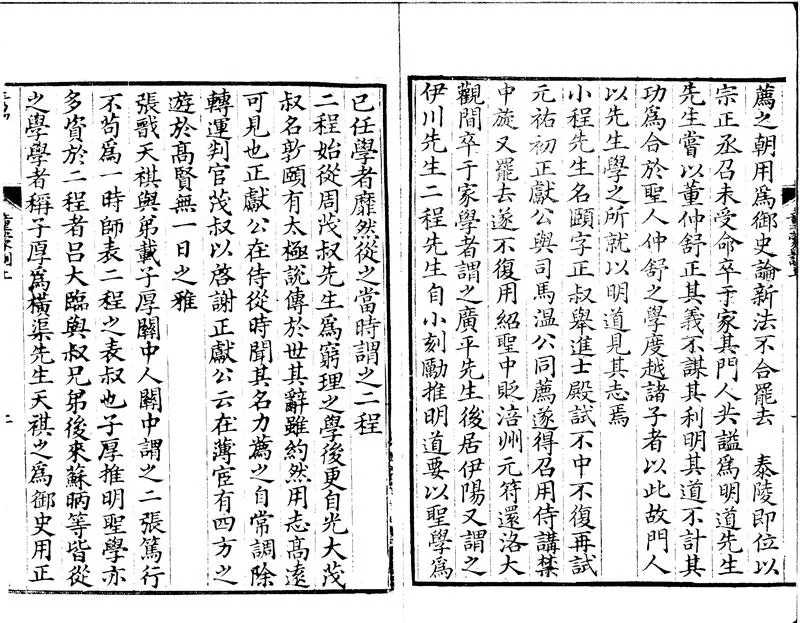 薦之朝用爲御史論新法不合罷去　泰陵即位以
宗正丞召未受命卒于家其門人共謚爲明道先生
先生嘗以董仲舒正其義不謀其利明其道不計其
功爲合於聖人仲舒之學度越諸子者以此故門人
以先生學之所就以明道見其志焉
小程先生名頤字正叔舉進士殿試不中不復再試
元祐初正獻公與司馬溫公同薦遂得召用侍講禁
中旋又罷去遂不復用紹聖中貶涪州元符還洛大
觀間卒于家學者謂之廣平先生後居伊陽又謂之
伊川先生二程先生自小刻勵推明道要以聖學爲
已任學者靡然從之當時謂之二程
二程始從周茂叔先生爲窮理之學後更自光大茂
叔名敦頤有太極說傳於世其辭雖約然用志高遠
可見也正獻公在侍從時聞其名力薦之自常調除
轉運判官茂叔以啓謝正獻公云在薄宦有四方之
遊於高賢無一日之雅
張戩天祺與弟載子厚關中人關中謂之二張篤行
不苟爲一時師表二程之表叔也子厚推明聖學亦
多資於二程者呂大臨與叔兄弟後來蘇昞等皆從
之學學者稱子厚爲橫渠先生天祺之爲御史用正